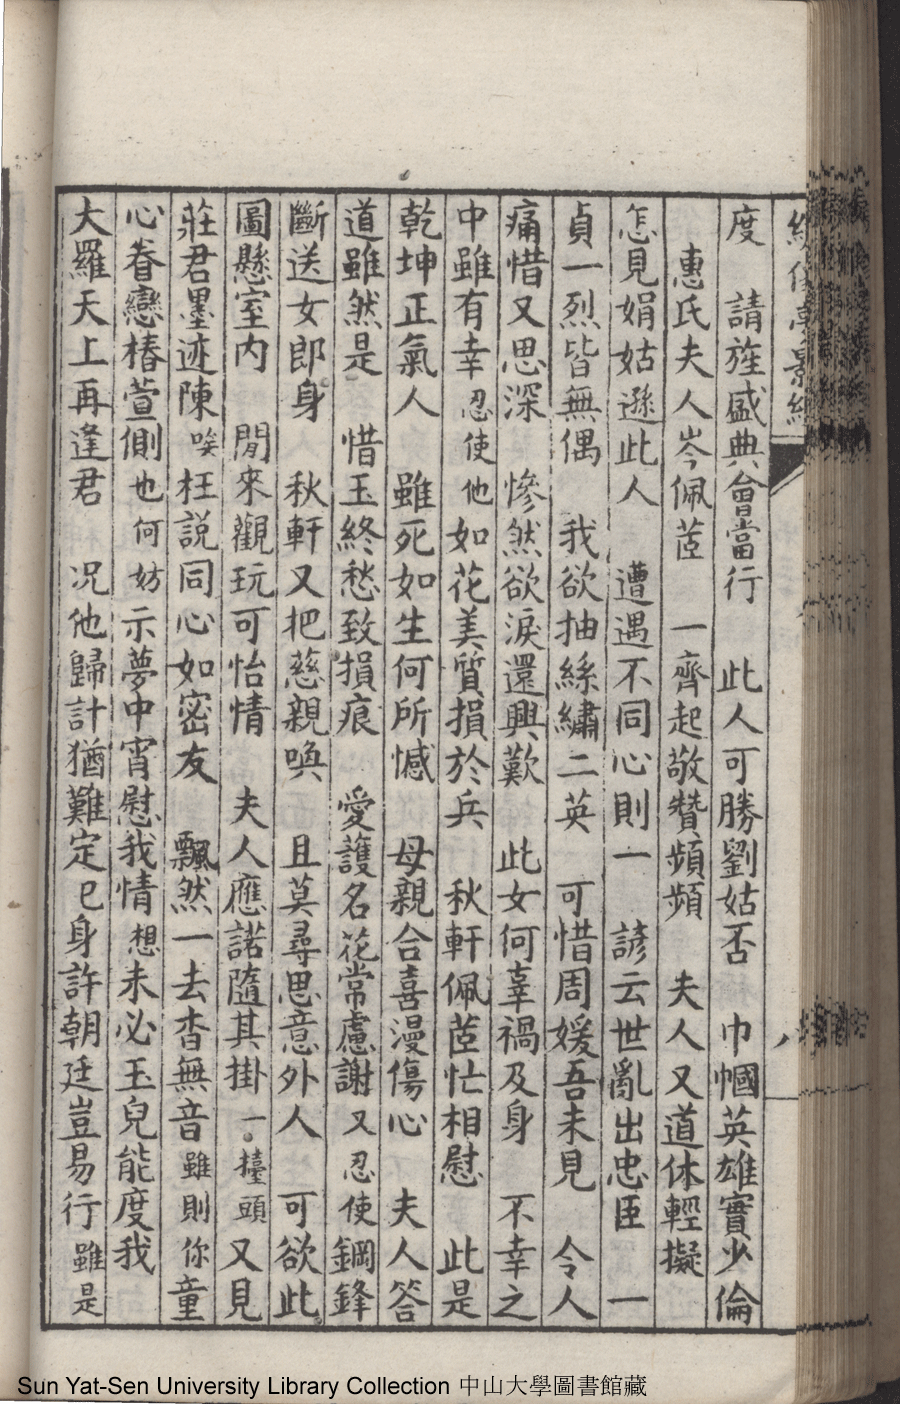 度　請旌盛典會當行　此人可勝劉姑否　巾幗英雄實少倫
惠氏夫人岑佩茝　一齊起敬贊頻頻　夫人又道休輕擬
怎見娟姑遜此人　遭遇不同心則一　諺云世亂出忠臣　一
貞一烈皆無偶　我欲抽絲繡二英　可惜周媛吾未見　令人
痛惜又思深　慘然欲淚還興歎　此女何辜禍及身　不幸之
中雖有幸忍使他如花美質損於兵　秋軒佩茝忙相慰　此是
乾坤正氣人　雖死如生何所憾　母親合喜漫傷心　夫人答
道雖然是　惜玉終愁致損痕　愛護名花常慮謝又忍使鋼鋒
斷送女郎身　秋軒又把慈親喚　且莫尋思意外人　可欲此
圖懸室內　閒來觀玩可怡情　夫人應諾隨其掛　一擡頭又見
莊君墨迹陳唉枉說同心如密友　飄然一去杳無音雖則你童
心眷戀椿萱側也何妨示夢中宵慰我情想未必玉兒能度我
大羅天上再逢君　况他歸計猶難定已身許朝廷豈易行雖是
Sun Yat-Sen University Library Collection 中山大學圖書館藏